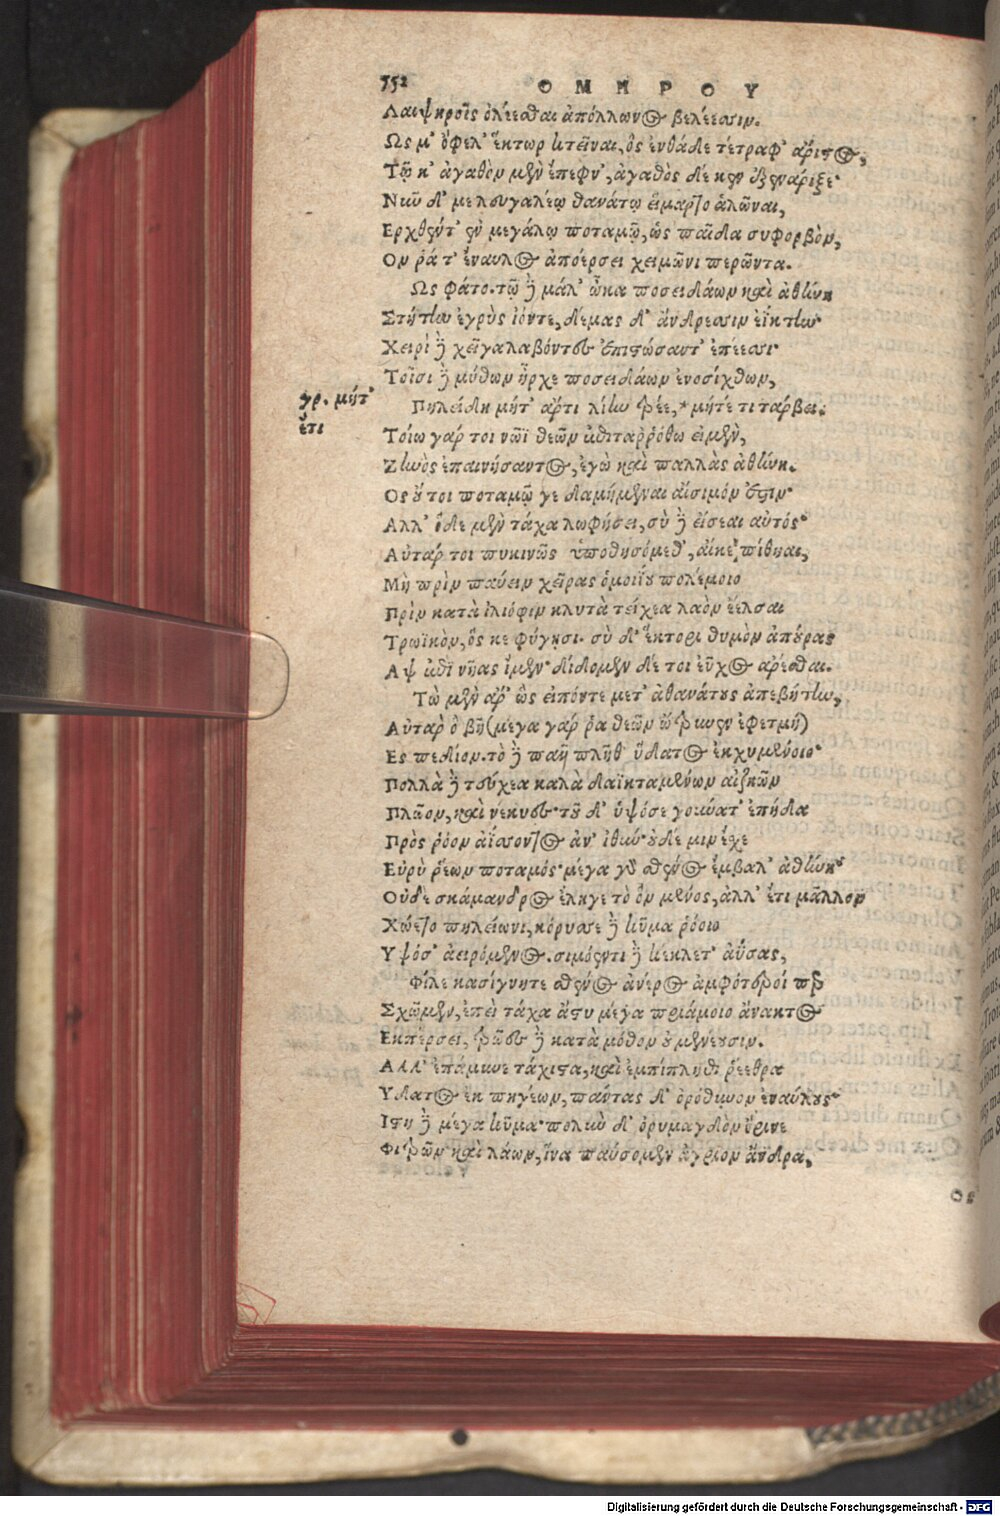 752 ΟΜΗΡΟΥ
Λαιψηροῖς ὀλέεσθαι ἀπόλλωνος βελέεσσιν.
Ως μ' ὄφελ' ἕκτωρ κτεῖναι, ὃς ἐνθάδε τέτραφ' ἄριστος,
Τῷ κ' ἀγαθὸν μὲν ἔπεφν', ἀγαθὸς δέ κεν ἐξενάριξε·
Νῦν δέ με λευγαλέῳ θανάτῳ εἵμαρτο ἁλῶναι,
Ερχθέντ' ἐν μεγάλῳ ποταμῷ, ὡς παῖδα συφορβὸν,
Ον ῥά τ' ἔναυλος ἀποέρσει χειμῶνι περῶντα.
Ως φάτο. τῷ δὲ μάλ' ὦκα ποσειδάων καὶ ἀθήνη
Στήτην ἐγγὺς ἰόντε, δέμας δ' ἄνδρεσσιν ἐΐκτην·
Χειρὶ δὲ χεῖρα λαβόντες ἐπιστώσαντ' ἐπέεσσι·
Τοῖσι δὲ μύθων ἦρχε ποσειδάων ἐνοσίχθων,
γρ. μήτ'
ἔτι
Πηλείδη μήτ' ἄρτι λίην τρέε, * μήτέ τι τάρβει.
Τοίω γάρ τοι νῶϊ θεῶν ἐπιταῤῥόθω εἰμὲν,
Ζηνὸς ἐπαινήσαντος, ἐγὼ καὶ παλλὰς ἀθήνη.
Ος οὔ τοι ποταμῷ γε δαμήμεναι αἴσιμόν ἐστιν·
Αλλ' ὅδε μὲν τάχα λωφήσει, σὺ δὲ εἴσεαι αὐτός·
Αὐτάρ τοι πυκινῶς ὑποθησόμεθ', αἴκε πίθηαι,
Μὴ πρὶν παύειν χεῖρας ὁμοιΐου πολέμοιο
Πρὶν κατὰ ἰλιόφιν κλυτὰ τείχεα λαὸν ἔελσαι
Τρωϊκὸν, ὅς κε φύγῃσι. σὺ δ' ἕκτορι θυμὸν ἀπούρας
Αψ ἐπὶ νῆας ἴμεν· δίδομεν δέ τοι εὖχος ἀρέσθαι.
Τὼ μὲν ἄρ' ὣς εἰπόντε μετ' ἀθανάτους ἀπεβήτην,
Αὐτὰρ ὁ βῆ (μέγα γάρ ῥα θεῶν ὤτρυνεν ἐφετμή)
Ες πεδίον. τὸ δὲ πᾶν πλῆθ' ὕδατος ἐκχυμένοιο·
Πολλὰ δὲ τεύχεα καλὰ δαϊκταμένων αἰζηῶν
Πλῶον, καὶ νέκυες· τοῦ δ' ὑψόσε γούνατ' ἐπήδα
Πρὸς ῥόον ἀΐσσοντος ἀν' ἰθύν· οὐδέ μιν ἔσχε
Εὐρὺ ῥέων ποταμός· μέγα γὰρ σθένος ἔμβαλ' ἀθήνη·
Οὐδὲ σκάμανδρος ἔληγε τὸ ὃν μένος, ἀλλ' ἔτι μᾶλλον
Χώετο πηλείωνι, κόρυσσε δὲ κῦμα ῥόοιο
Υψόσ' ἀειρόμενος. σιμόεντι δὲ κέκλετ' ἀΰσας,
Φίλε κασίγνητε σθένος ἀνέρος ἀμφότεροί περ
Σχῶμεν, ἐπεὶ τάχα ἄστυ μέγα πριάμοιο ἄνακτος
Εκπέρσει, τρῶες δὲ κατὰ μόθον οὐ μενέουσιν.
Αλλ' ἐπάμυνε τάχιστα, καὶ ἐμπίπληθι ῥέεθρα
Υδατος ἐκ πηγέων, πάντας δ' ὀρόθυνον ἐναύλους·
Ιστη δὲ μέγα κῦμα· πολὺν δ' ὀρυμαγδὸν ὄρινε
Φιτρῶν καὶ λάων, ἵνα παύσομεν ἄγριον ἄνδρα,
Ος
Digitalisierung gefördert durch die Deutsche Forschungsgemeinschaft - DFG